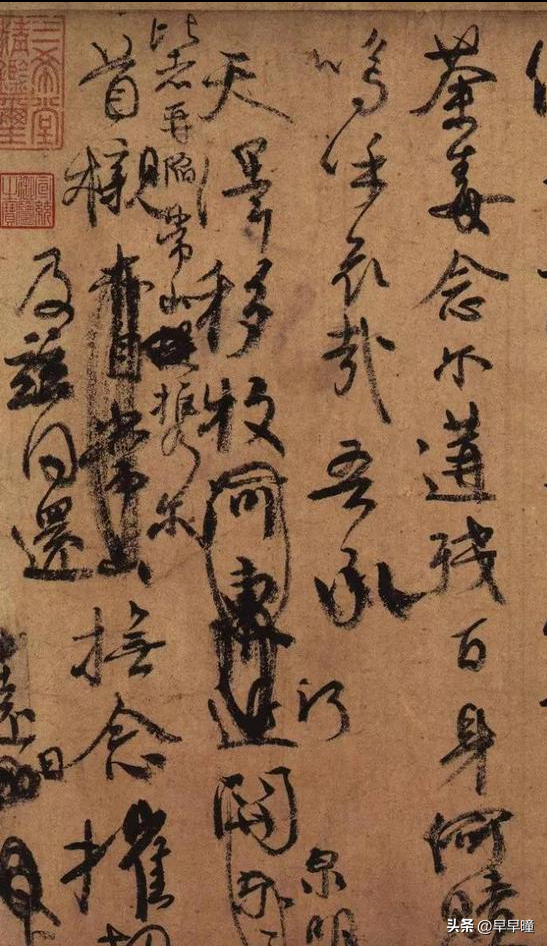 荼毒念尔遘残百身何贖
嗚呼哀哉吾承
泉明
天澤移牧河關
比者再陷常山携尔
首櫬亦自常山撫念摧切
及茲同還
遠日
月
三希堂精鑑璽
头条 @早早瞳